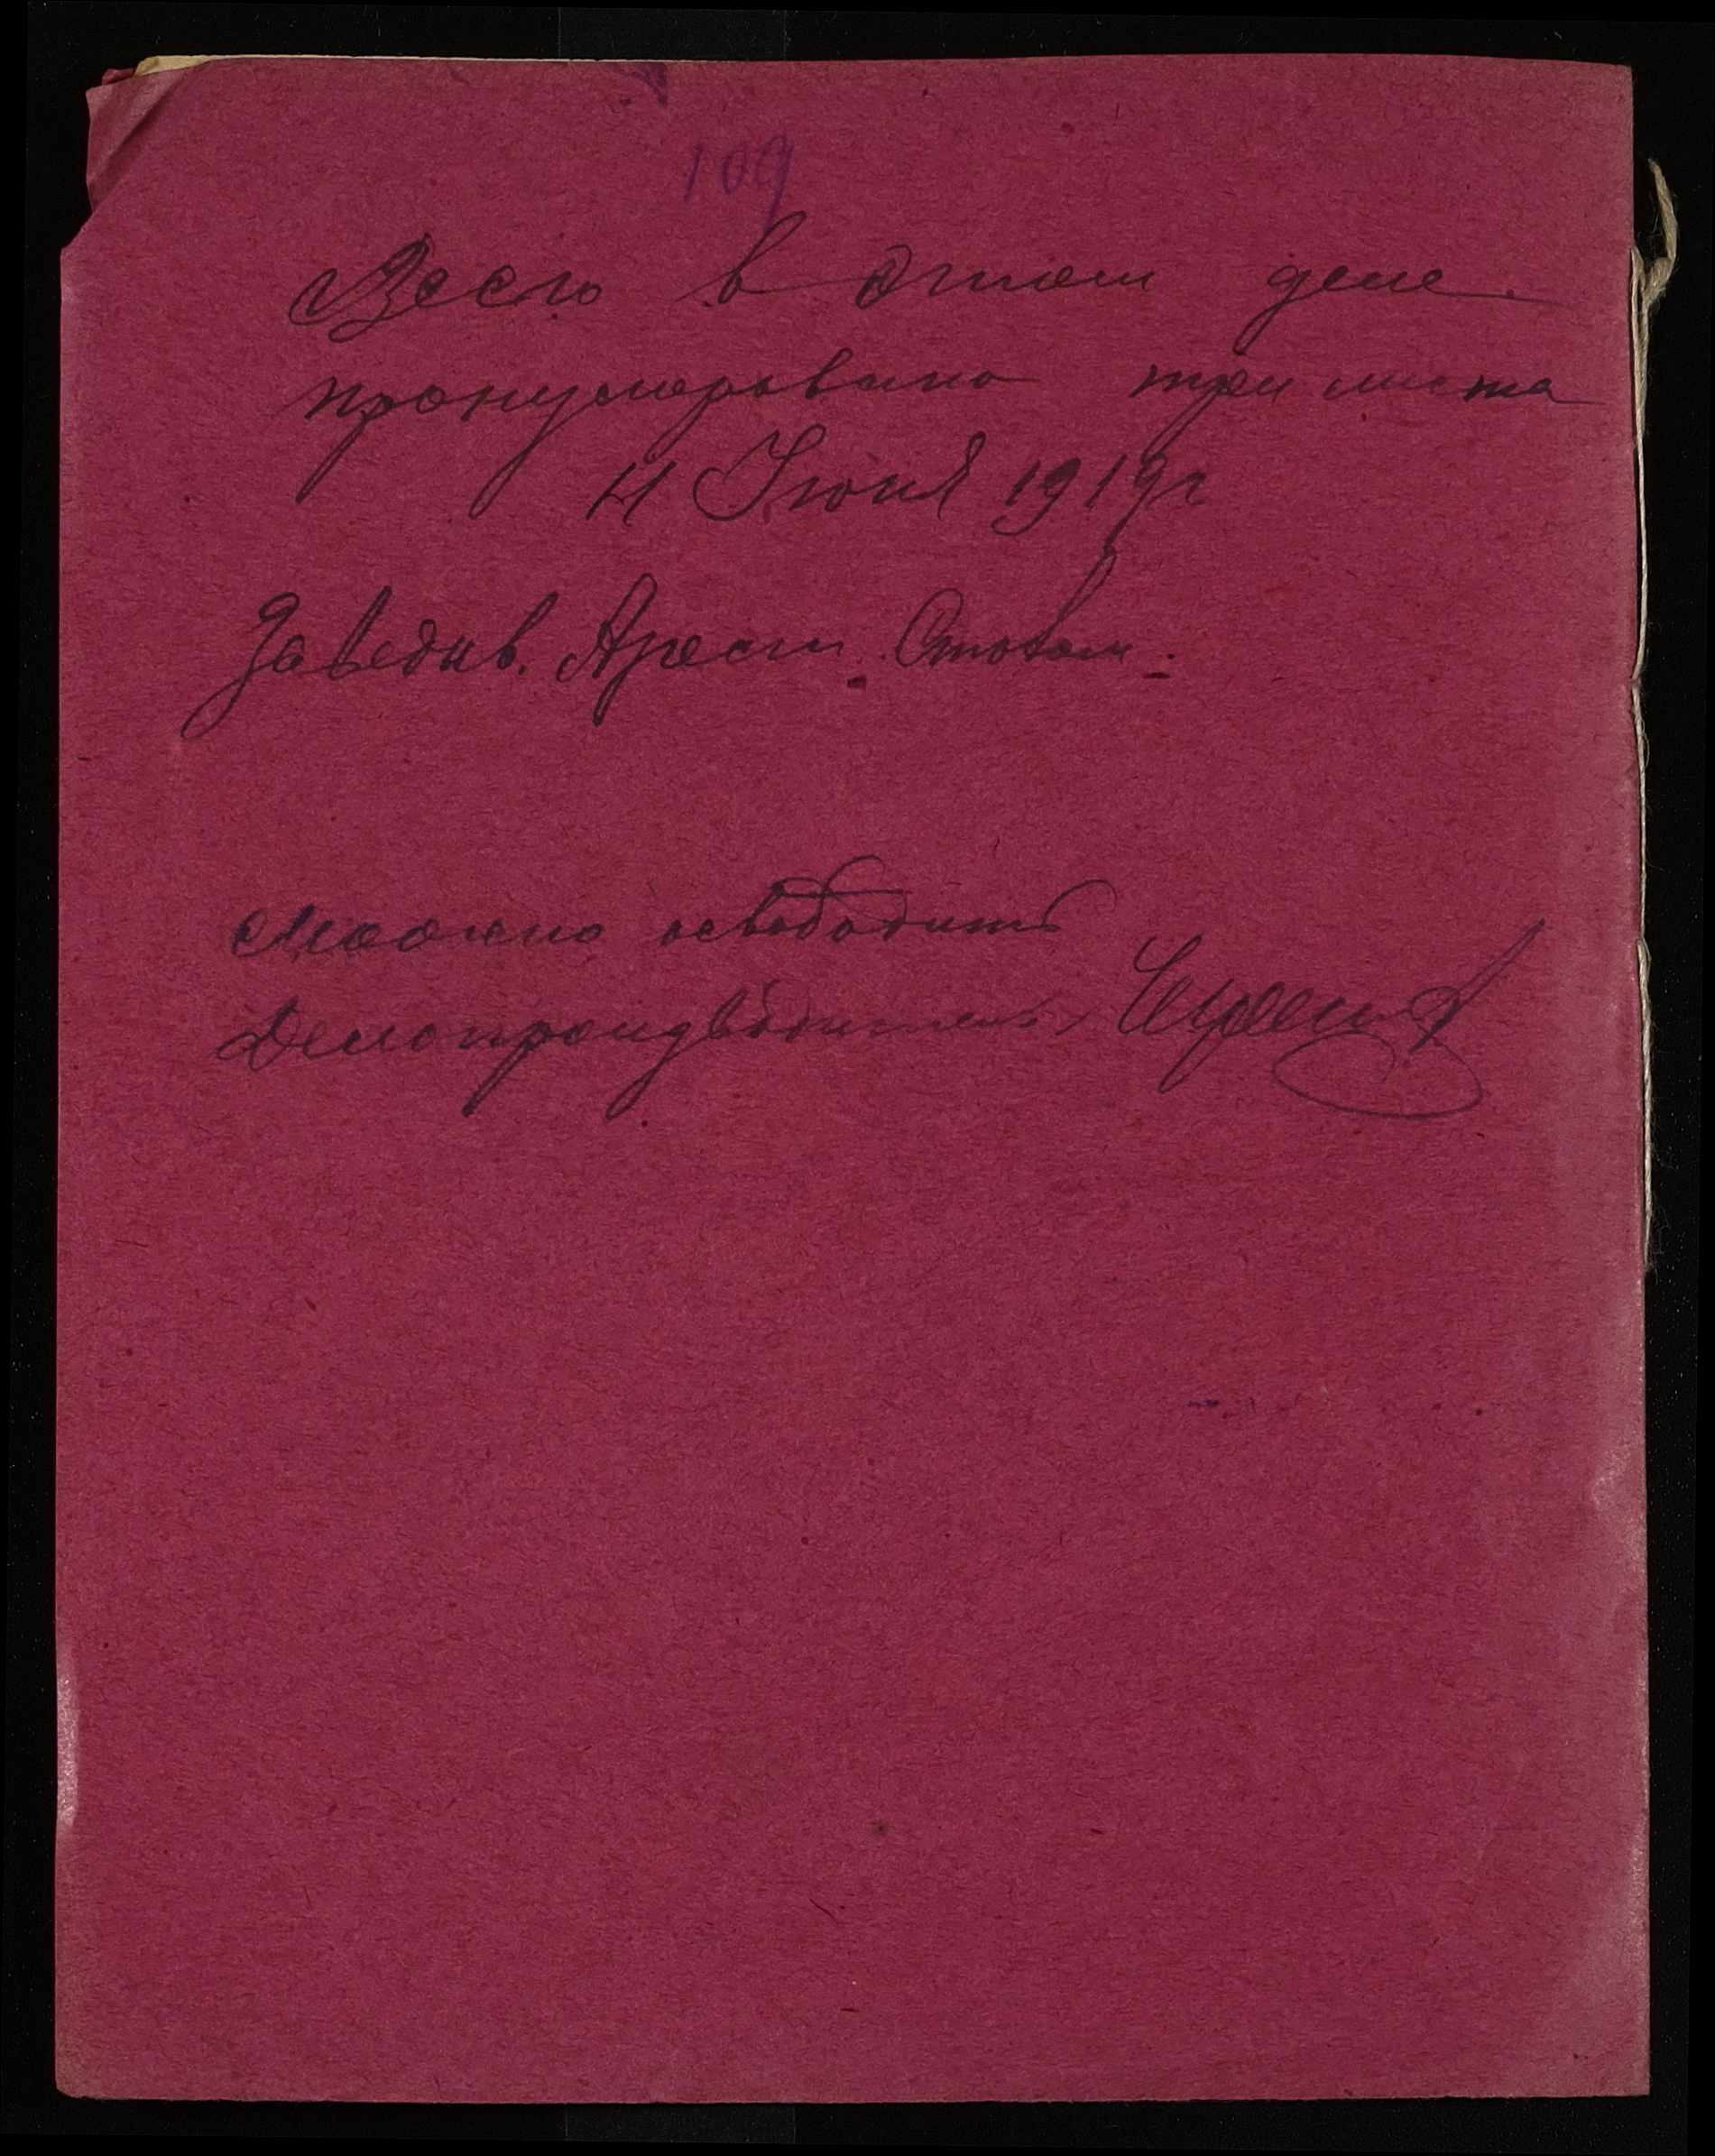 109
Всего в этом деле
пронумеровано три листа
4 Июня 1919 г
Заведив. Арест. Столом.
Можно освободить
Делопроизводитель